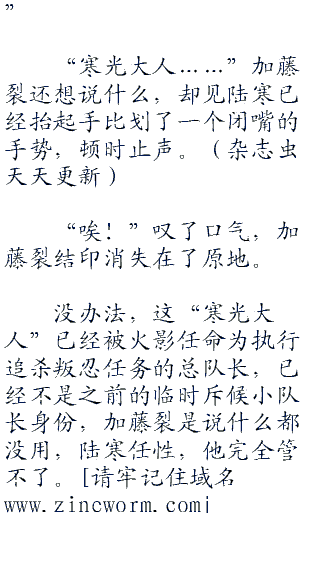 ”
“寒光大人……”加藤
裂还想说什么，却见陆寒已
经抬起手比划了一个闭嘴的
手势，顿时止声。（杂志虫
天天更新）
“唉！”叹了口气，加
藤裂结印消失在了原地。
没办法，这“寒光大
人”已经被火影任命为执行
追杀叛忍任务的总队长，已
经不是之前的临时斥候小队
长身份，加藤裂是说什么都
没用，陆寒任性，他完全管
不了。[请牢记住域名
www.zincworm.com¦